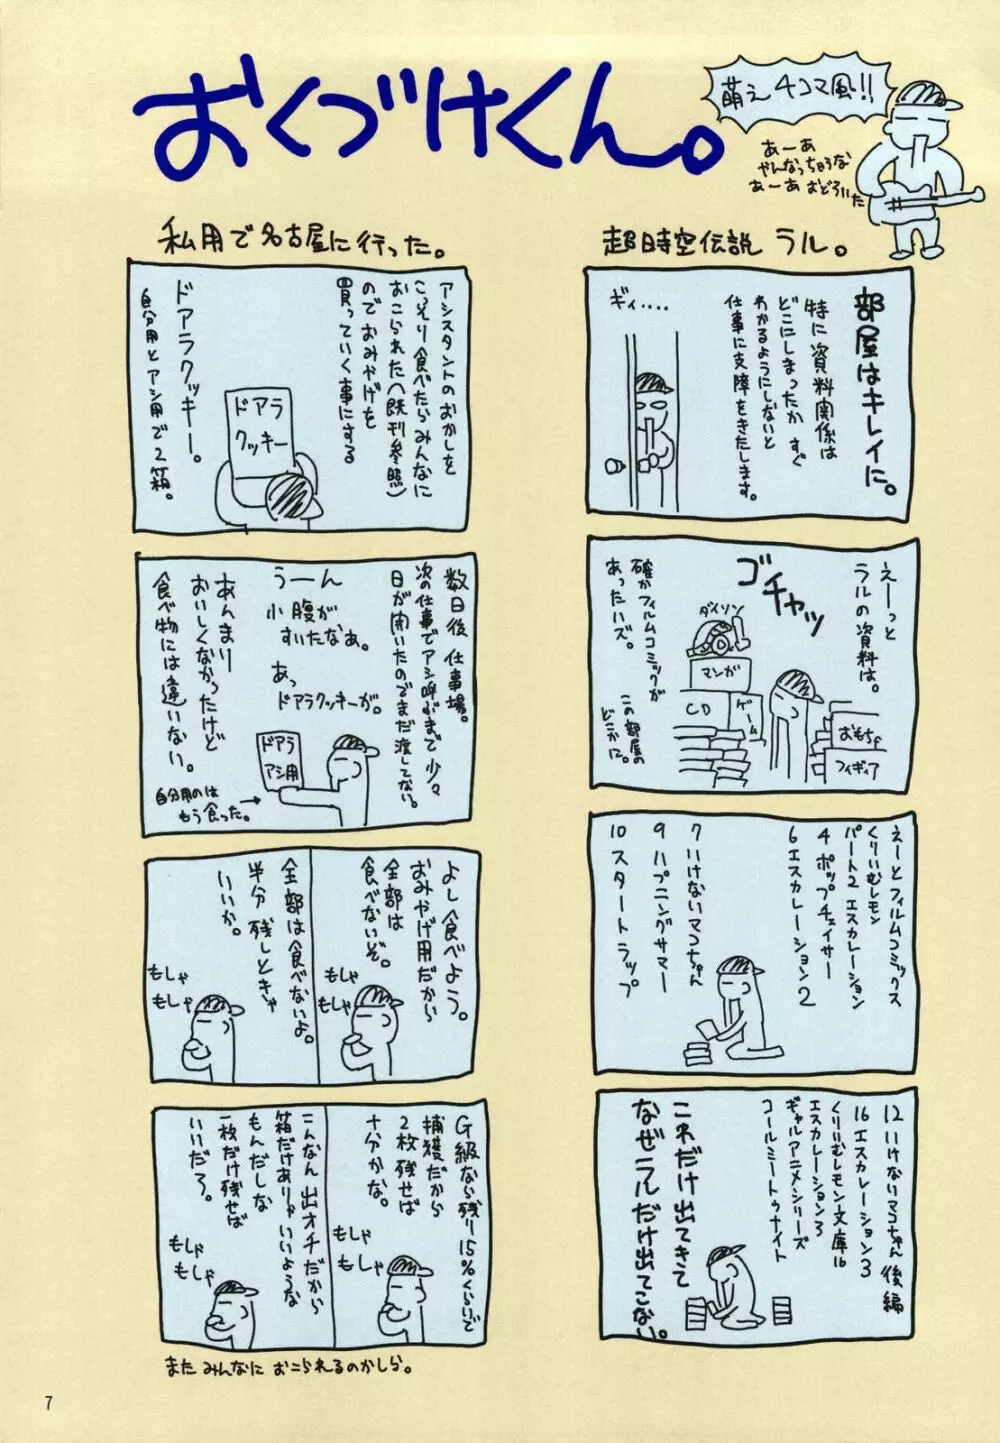 おくづけくん。
萌え4コマ風!!
あーあ
やんなっちゃうな
あーあ おどろいた
超時空伝説 ラル。
部屋はキレイに。
特に資料関係は
どこにしまったか すぐ
わかるようにしないと
仕事に支障をきたします。
ギィ....
えーっと
ラルの資料は。
ゴチャッ
ダイソン
マンガ
CD
ゲーム
おもちゃ
フィギィア
確かフィルムコミックが
あったハズ。
この部屋の
どこかに。
えーと フィルムコミックス
くりぃむレモン
パート2 エスカレーション
4 ポップチェイサー
6 エスカレーション2
7 いけないマコちゃん
9 ハプニングサマー
10 スタートラップ
12 いけないマコちゃん 後編
16 エスカレーション3
くりぃむレモン文庫16
エスカレーション3
ギャルアニメシリーズ
コールミートゥナイト
これだけ出てきて
なぜラルだけ出てこない。
私用で名古屋に行った。
アシスタントのおかしを
こっそり食べたらみんなに
おこられた(既刊参照)
ので おみやげを
買っていく事にする
ドアラ
クッキー
ドアラクッキー。
自分用とアシ用で2箱。
数日後 仕事場。
次の仕事でアシ呼ぶまで少々
日が開いたのでまだ渡してない。
うーん
小腹が
すいたなぁ。
あっ
ドアラクッキーが。
ドアラ
アシ用
あんまり
おいしくなかったけど
食べ物には違いない。
自分用のは
もう食った。
よし食べよう。
おみやげ用だから
全部は
食べないぞ。
もしゃ
もしゃ
全部は食べないよ。
半分 残しときゃ
いいか。
もしゃ
もしゃ
G級なら残り15%くらいで
捕獲だから
2枚残せば
十分かな。
もしゃ
もしゃ
こんなん出オチだから
箱だけありゃいいような
もんだしな
一枚だけ残せば
いいだろ。
もしゃ
もしゃ
また みんなに おこられるのかしら。
7